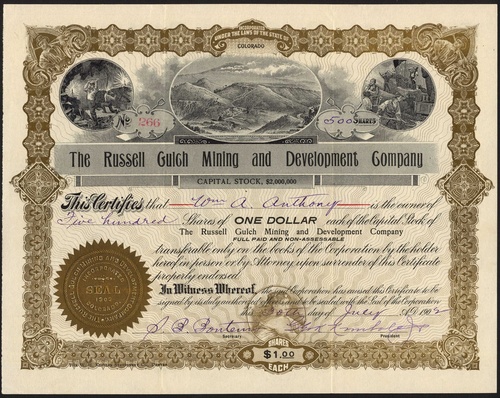 INCORPORATED
UNDER THE LAWS OF THE STATE OF
COLORADO
No 266
500 SHARES
The Russell Gulch Mining and Development Company
CAPITAL STOCK, $2,000,000
This Certifies that Wm A. Anthony is the owner of
Five hundred Shares of ONE DOLLAR each of the Capital Stock of
The Russell Gulch Mining and Development Company
FULL PAID AND NON-ASSESSABLE
transferable only on the books of the Corporation by the holder
hereof in person or by Attorney upon surrender of this Certificate
properly endorsed.
In Witness Whereof, the said Corporation has caused this Certificate to be
signed by its duly authorized officers and to be sealed with the Seal of the Corporation
this day of July A.D. 1902
Secretary
SEAL
SHARES
$1.00
EACH